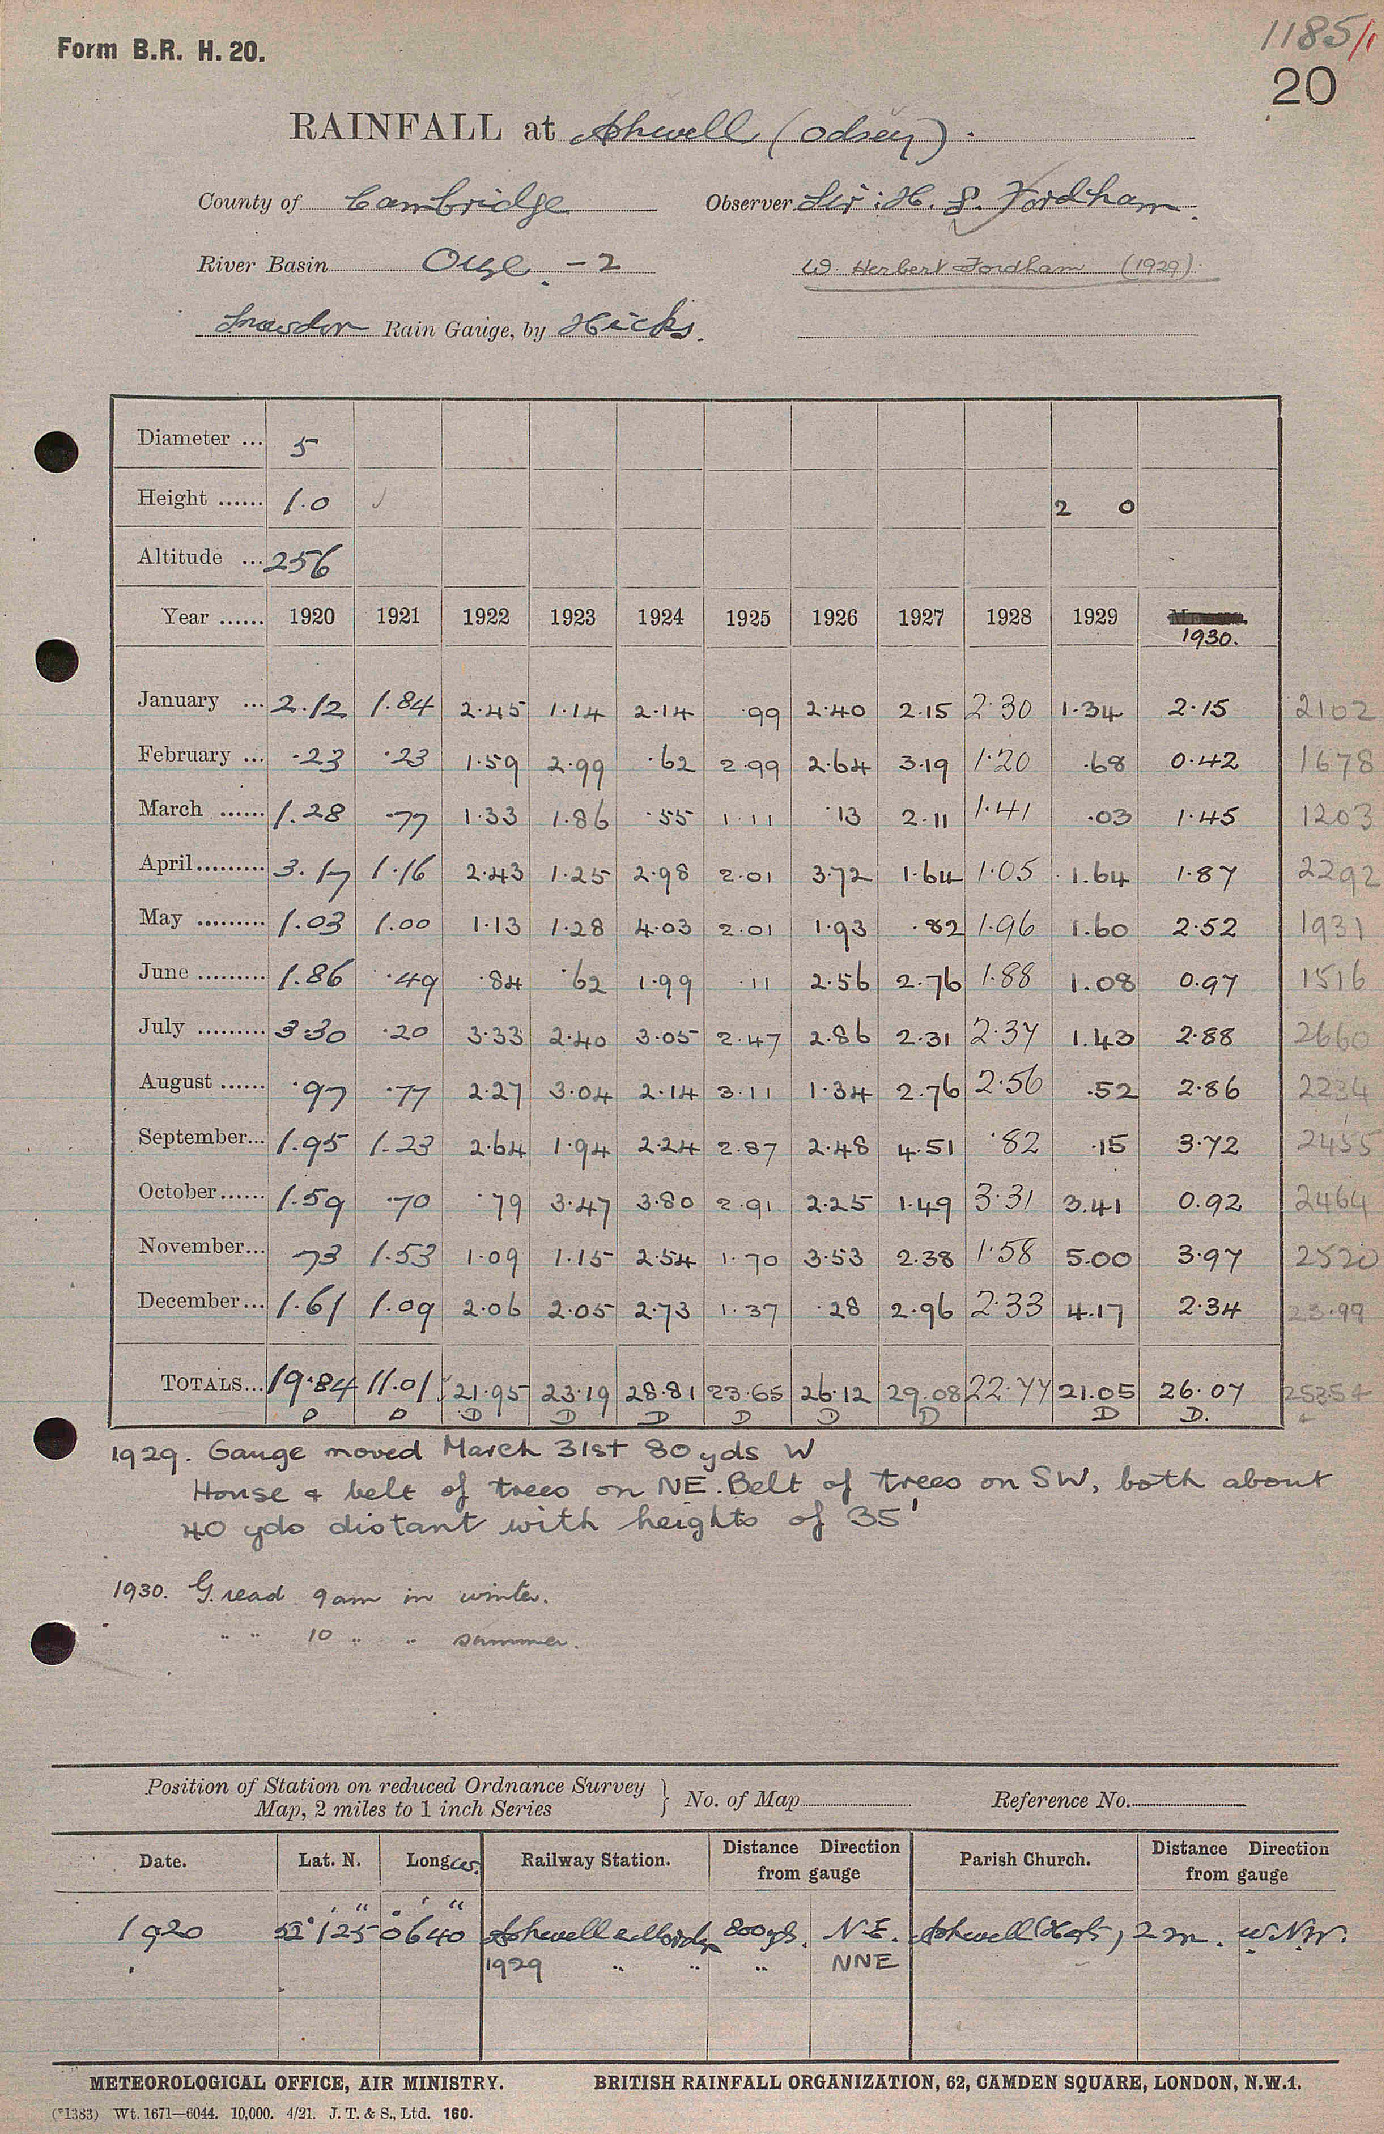 1185/1
Form B.R. H. 20.
20
RAINFALL at Ashwell (Odsey).
County of Cambridge Observer Sir : H. G. Fordham.
River Basin Ouse. - 2 W. Herbert Fordham (1929)
Snowdon Rain Gauge, by Hicks.
Diameter ... 5
Height ...... 1.0 ✓ 2 0
Altitude ... 256
Year ...... 1920 1921 1922 1923 1924 1925 1926 1927 1928 1929 1930.
January ... 2.12 1.84 2.45 1.14 2.14 .99 2.40 2.15 2.30 1.34 2.15 2102
February ... .23 .23 1.59 2.99 .62 2.99 2.64 3.19 1.20 .68 0.42 1678
March ...... 1.28 .77 1.33 1.86 .55 1.11 .13 2.11 1.41 .03 1.45 1203
April ......... 3.17 1.16 2.43 1.25 2.98 2.01 3.72 1.64 1.05 1.64 1.87 2292
May ......... 1.03 1.00 1.13 1.28 4.03 2.01 1.93 .82 1.96 1.60 2.52 1931
June ......... 1.86 .49 .84 .62 1.99 .11 2.56 2.76 1.88 1.08 0.97 1516
July ......... 3.30 .20 3.33 2.40 3.05 2.47 2.86 2.31 2.37 1.43 2.88 2660
August ...... .97 .77 2.27 3.04 2.14 3.11 1.34 2.76 2.56 .52 2.86 2234
September... 1.95 1.23 2.64 1.94 2.24 2.87 2.48 4.51 .82 .15 3.72 2455
October...... 1.59 .70 .79 3.47 3.80 2.91 2.25 1.49 3.31 3.41 0.92 2464
November... .73 1.53 1.09 1.15 2.54 1.70 3.53 2.38 1.58 5.00 3.97 2520
December... 1.61 1.09 2.06 2.05 2.73 1.37 .28 2.96 2.33 4.17 2.34 23.99
TOTALS... 19.84 11.01 21.95 23.19 28.81 23.65 26.12 29.08 22.77 21.05 26.07 25354
D D D D D D D D D D.
1929. Gauge moved March 31st 80 yds W
House & belt of trees on NE. Belt of trees on SW, both about
40 yds distant with heights of 35'
1930. G. read 9am in winter.
" " 10 " " summer.
Position of Station on reduced Ordnance Survey
Map, 2 miles to 1 inch Series } No. of Map Reference No.
Date. Lat. N. Long Railway Station. Distance Direction from gauge Parish Church. Distance Direction from gauge
1920 52° 1' 25" 0° 6' 40" Ashwell & Morden 800 yds. N.E. Ashwell (Herts) 2 m. W.N.W.
1929 " " " NNE
METEOROLOGICAL OFFICE, AIR MINISTRY. BRITISH RAINFALL ORGANIZATION, 62, CAMDEN SQUARE, LONDON, N.W.1.
(*1383) Wt. 1671—6044. 10,000. 4/21. J. T. & S., Ltd. 160.